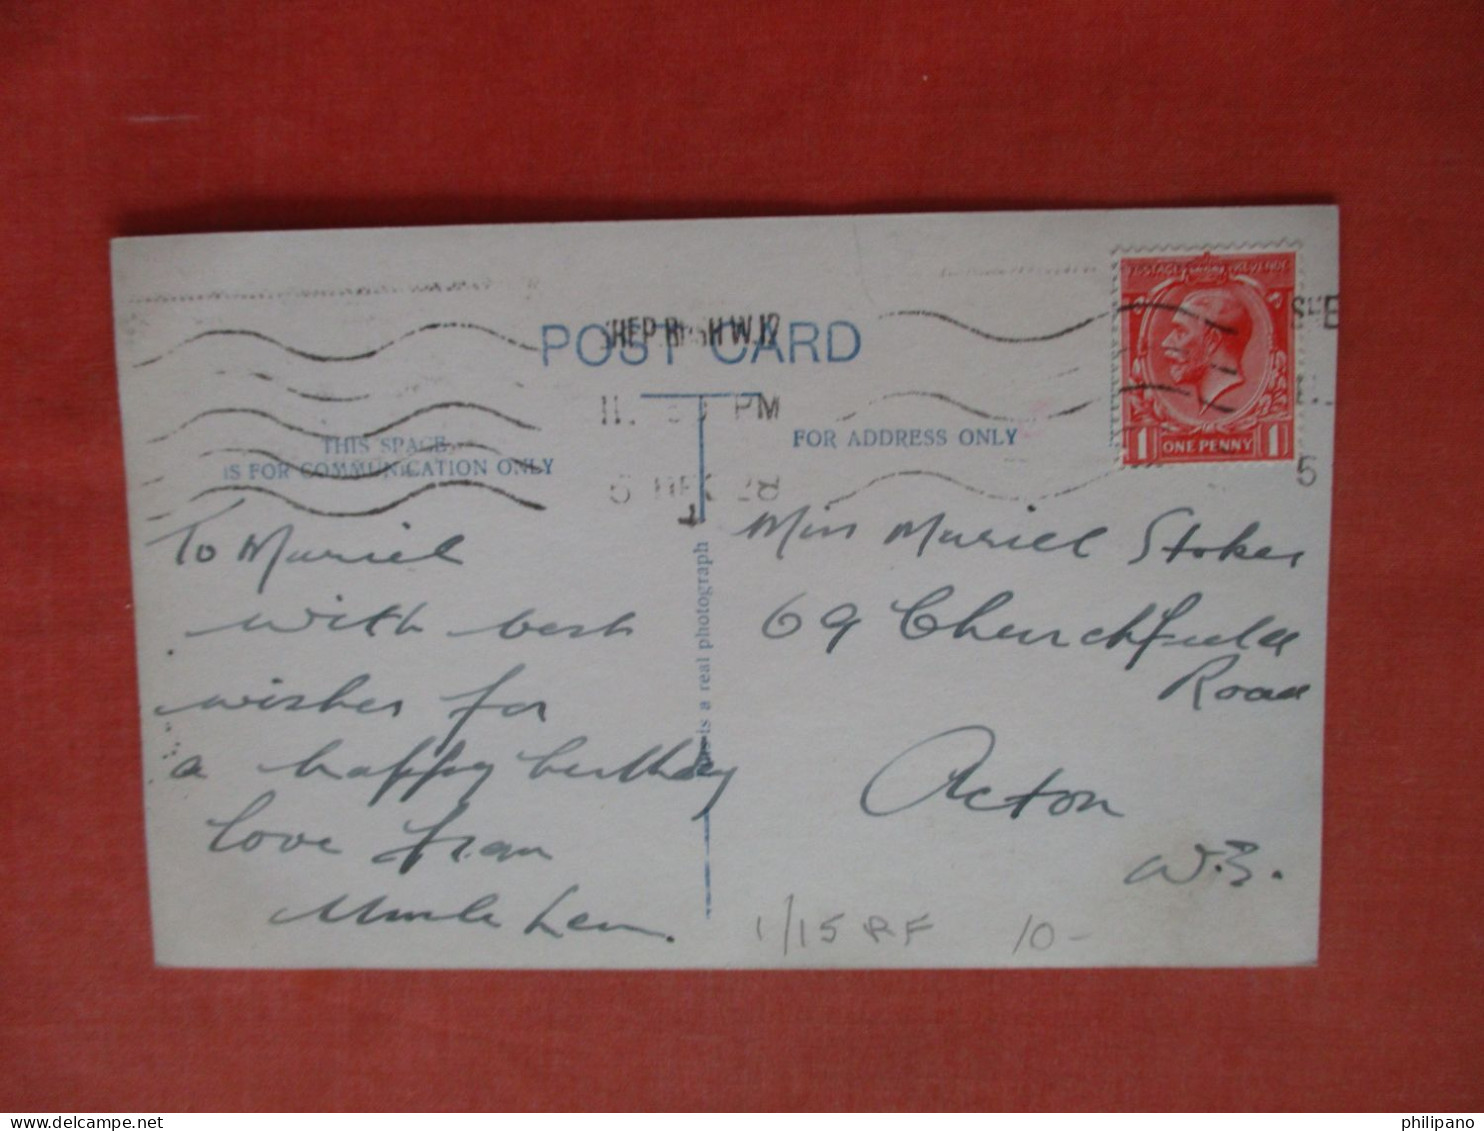 POST CARD
SHEP. BUSH W.12
11. PM
5 DEC 28
THIS SPACE
IS FOR COMMUNICATION ONLY
FOR ADDRESS ONLY
This is a real photograph
POSTAGE REVENUE
1 ONE PENNY 1
SHE
5
To Muriel
with best
wishes for
a happy birthday
love from
Uncle Len.
Miss Muriel Stokes
69 Churchfield
Road
Acton
W.3.
1/15 RF 10-
philipano